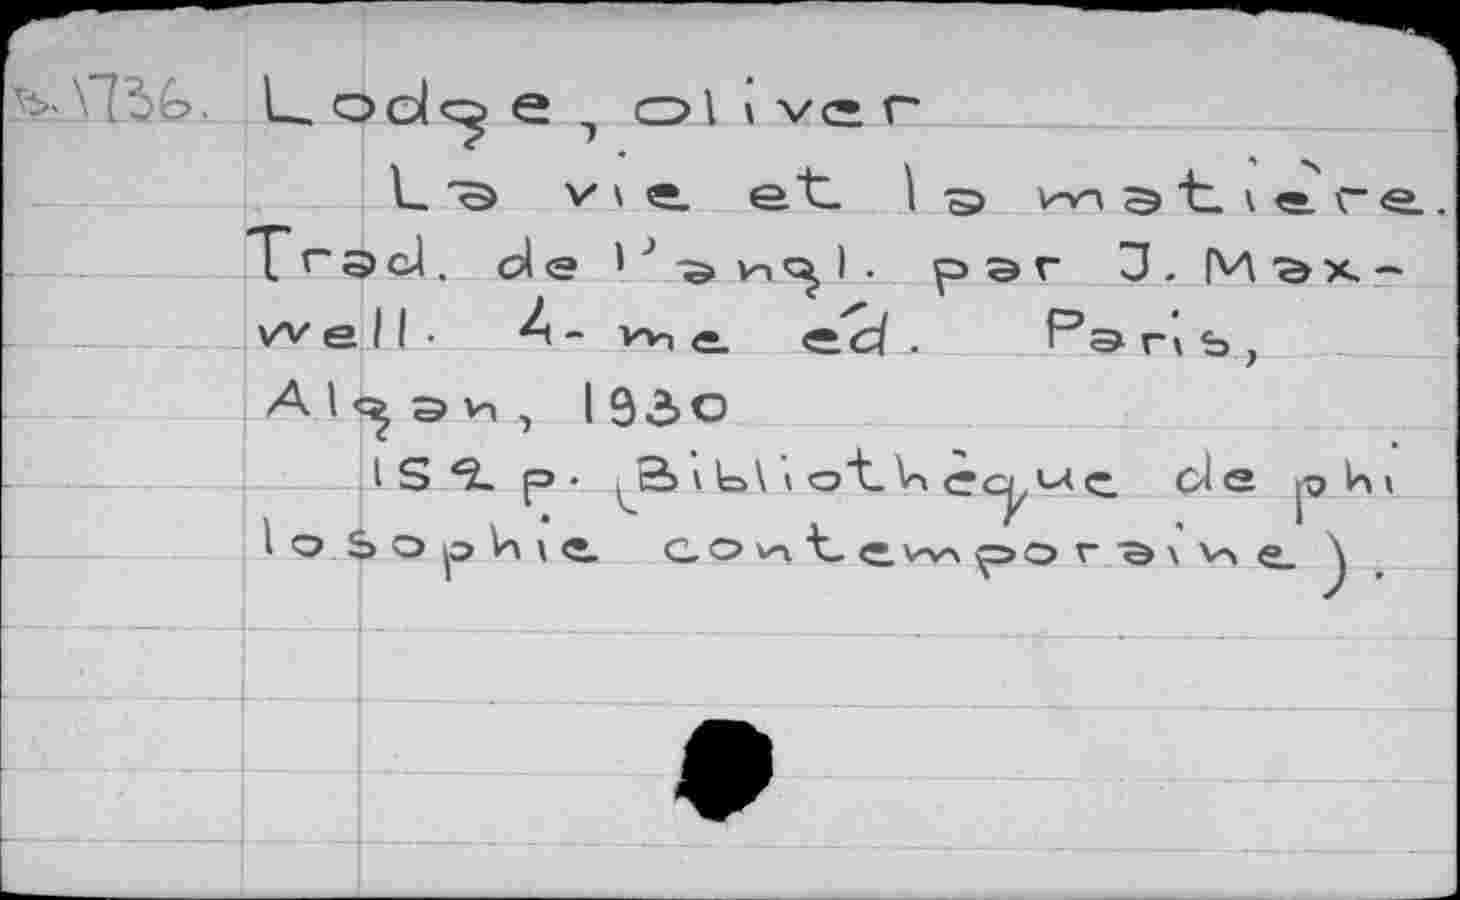 ъ.1736. Lodge, oliver
La vie et la matière.
Trad. de l'angl. par J. Max-
well. 4-me éd. Paris,
Algan, 1930
152 p. (Bibliothèque de phi
losophie contemporaine).